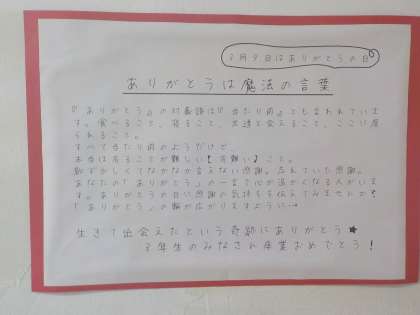 3月9日はありがとうの日
ありがとうは魔法の言葉
『ありがとう』の対義語は『当たり前』とも言われていま
す。食べること、寝ること、友達と会えること、ここに居
られること。
すべて当たり前のようだけど、
本当は有ることが難しい【有難い】こと。
恥ずかしくてなかなか言えない感謝。忘れていた感謝。
あなたの「ありがとう」の一言で心が温かくなる人がいま
す。ありがとうの日に感謝の気持ちを伝えてみませんか?
「ありがとう」の輪が広がりますように…
生きて出会えたという奇跡にありがとう★
3年生のみなさん卒業おめでとう!